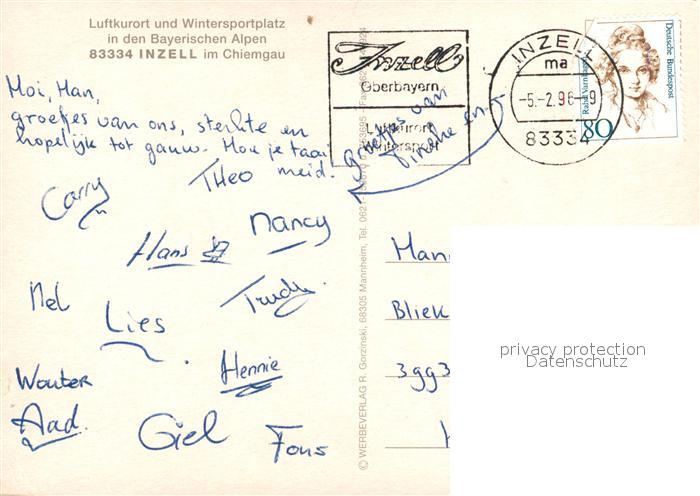 Luftkurort und Wintersportplatz
in den Bayerischen Alpen
83334 INZELL im Chiemgau
Inzell
Oberbayern
Luftkurort
Wintersport
INZELL
ma
-5.-2.96-9
83334
Deutsche Bundespost
Rahel Varnhagen
80
Moi, Man,
groetjes van ons, sterkte en
hopelijk tot gauw. Hou je taai
meid.
groetjes van
Carry
THeo
Nancy
Hans
Nel
Lies
Trudy.
Hennie
Wouter
Aad.
Giel
Fons
Man
Bliek
3993
© WERBEVERLAG R. Gorzinski, 68305 Mannheim, Tel. 0621
privacy protection
Datenschutz